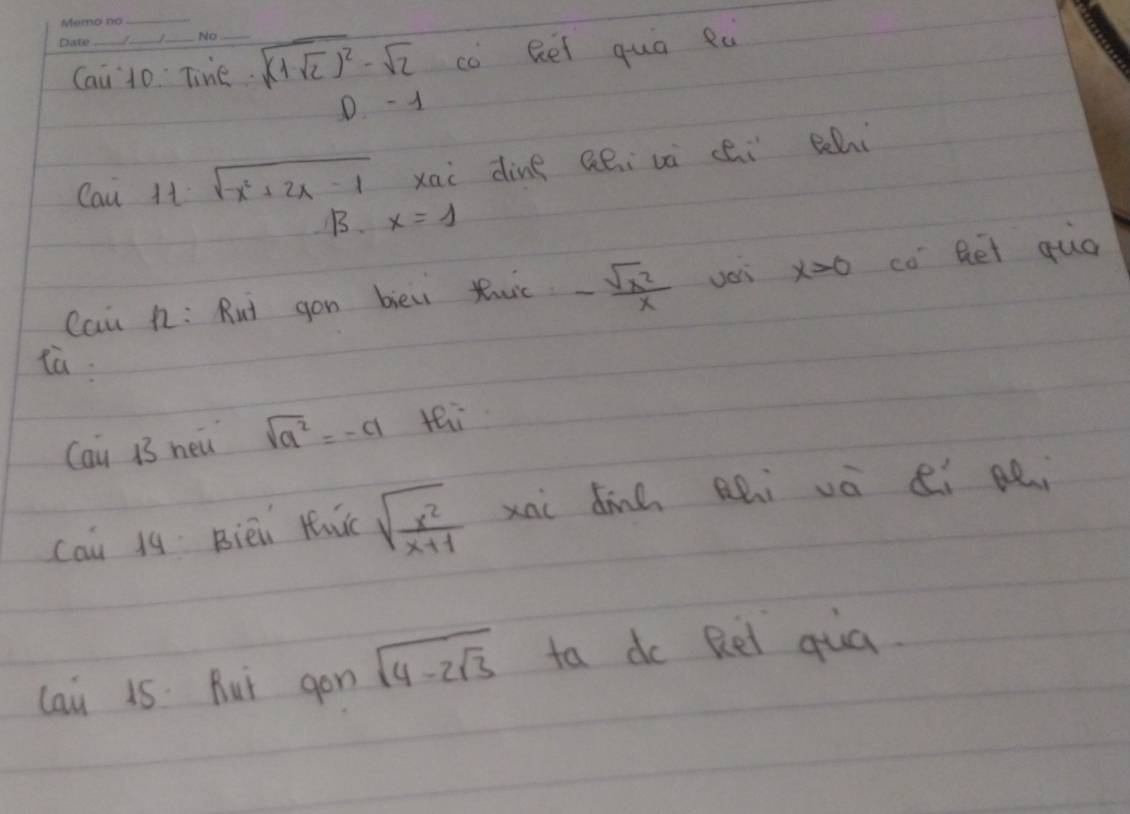 Memo no
Date / / No
Câu 10: Tính √(1√2)² - √2 có kết quả là
D. -1
Câu 11: √-x²+2x-1 xác định khi và chỉ khi
B. x = 1
Câu 12: Rút gọn biểu thức - √x²/x với x>0 có kết quả
là:
Câu 13 nếu √a² = -a thì
Câu 14: Biểu thức √x²/x+1 xác định khi và chỉ khi
Câu 15: Rút gọn √4-2√3 ta dc kết quả.